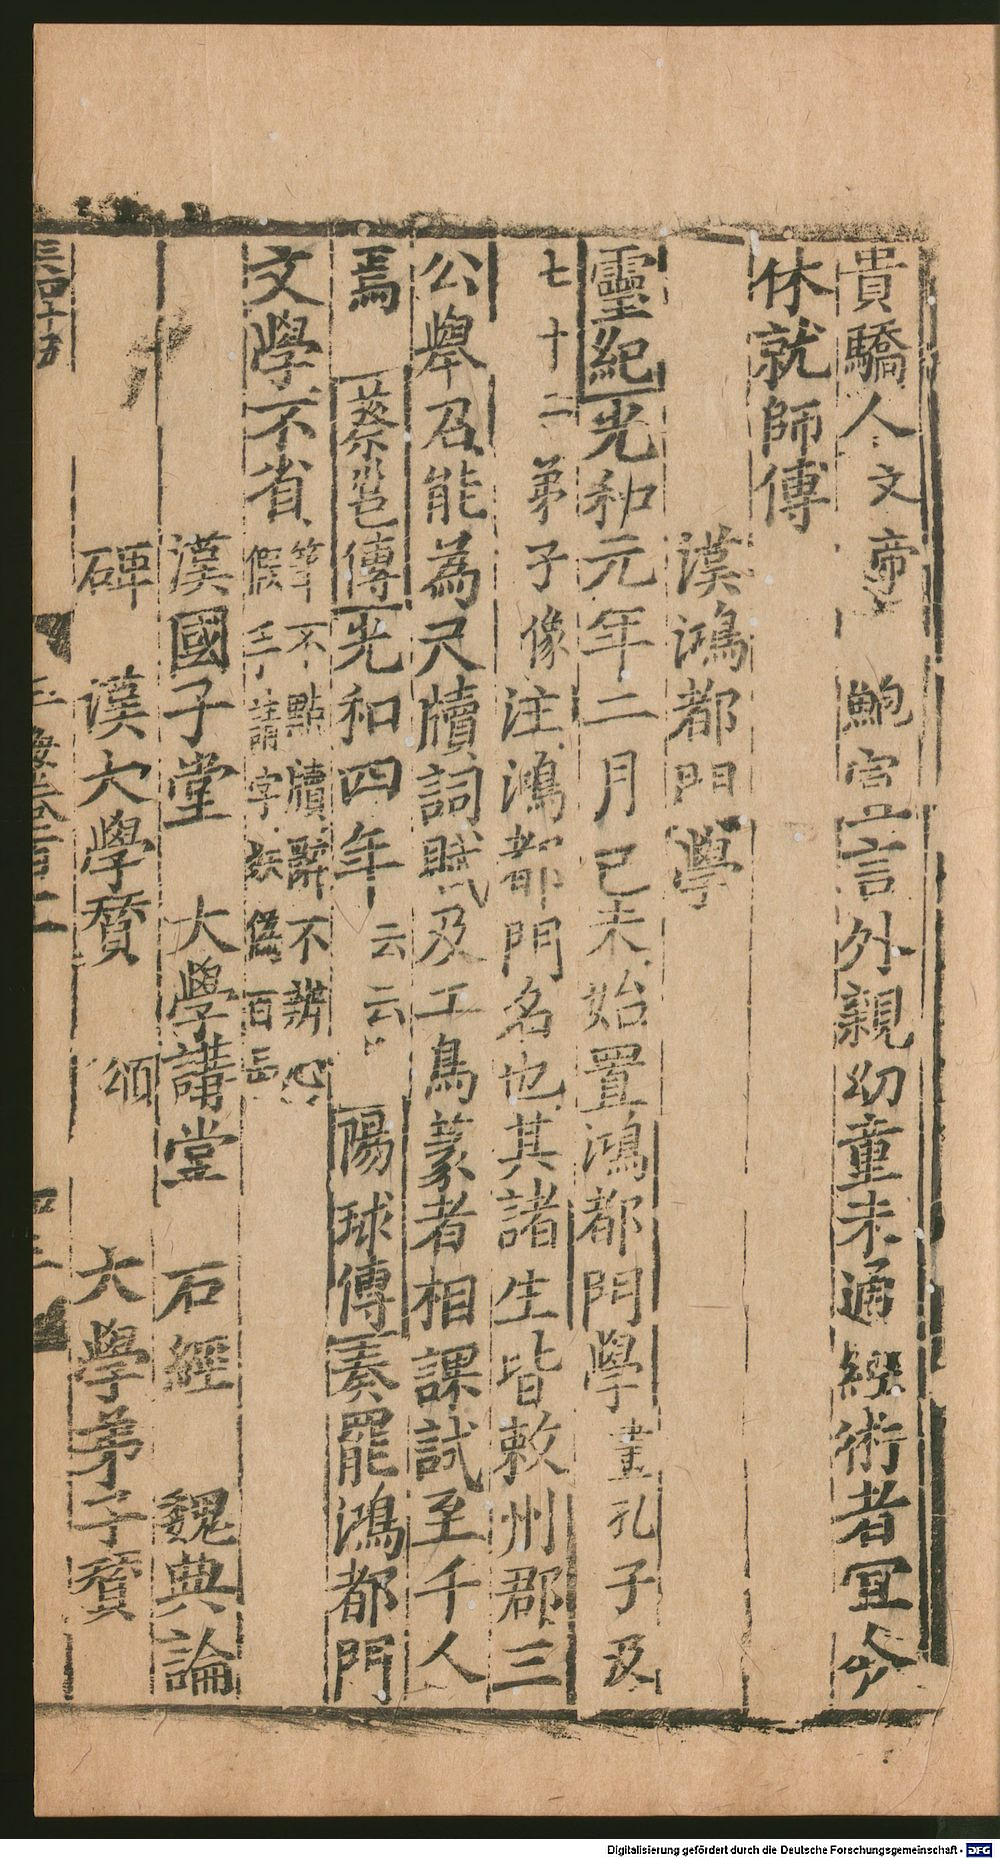 貴驕人文帝鮑宣上言外親幼童未通經術者宜令
休就師傅
漢鴻都門學
靈紀光和元年二月己未始置鴻都門學畫孔子及
七十二弟子像注鴻都門名也其諸生皆敕州郡三
公舉召能為尺牘詞賦及工鳥篆者相課試至千人
焉蔡邕傳光和四年云云陽球傳奏罷鴻都門
文學不省筆不點牘辭不辨心
假手請字妖偽百
漢國子堂 大學講堂 石經 魏典論
碑 漢大學贊 頌 大學弟子贊
三百十五
玉海卷百十二
Digitalisierung gefördert durch die Deutsche Forschungsgemeinschaft - DFG